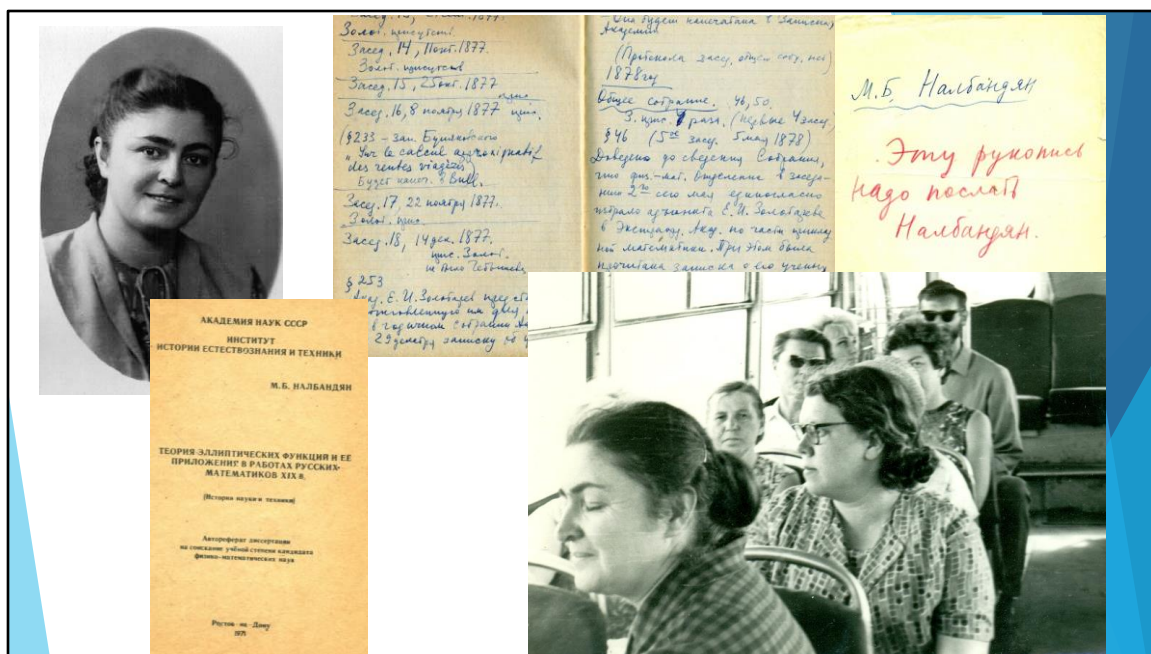 Золот. присутств.
Засед. 14, 11 окт. 1877.
Золот. присутств
Засед. 15, 25 окт. 1877
Засед. 16, 8 ноября 1877 прис.
(§233 – зап. Буняковского
"Sur le calcul approximatif
des rentes viagères"
Будет напеч. в Bull.
Засед. 17, 22 ноября 1877.
Золот. прис.
Засед. 18, 14 дек. 1877.
прис. Золот.
не было Чебышева
§ 253
Акад. Е. И. Золотарев
в годичном собрании
29 декабря записку
Она будет напечатана в Записках
Академии
(Протокола засед. общего собр. нет)
1878 год
Общее собрание. 46, 50.
З. прис. 4 раза. (первые 4 засед.
§ 46 (5ое засед. 5 мая 1878)
Доведено до сведения Собрания,
что физ.-мат. Отделение в заседа-
нии 2го сего мая единогласно
избрало адъюнкта Е. И. Золотарева
в Экстраорд. Акад. по части приклад
ной математики. При этом была
прочитана записка о его учены
М.Б. Налбандян
Эту рукопись
надо послать
Налбандян.
АКАДЕМИЯ НАУК СССР
ИНСТИТУТ
ИСТОРИИ ЕСТЕСТВОЗНАНИЯ И ТЕХНИКИ
М. Б. НАЛБАНДЯН
ТЕОРИЯ ЭЛЛИПТИЧЕСКИХ ФУНКЦИЙ И ЕЁ
ПРИЛОЖЕНИЯ В РАБОТАХ РУССКИХ
МАТЕМАТИКОВ XIX в.
(История науки и техники)
Автореферат диссертации
на соискание учёной степени кандидата
физико-математических наук
Ростов-на-Дону